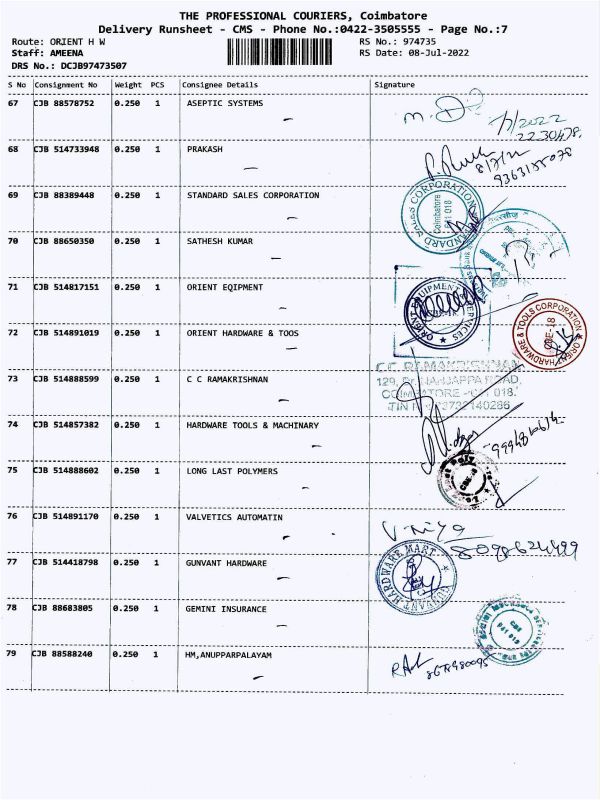 THE PROFESSIONAL COURIERS, Coimbatore
Delivery Runsheet - CMS - Phone No.:0422-3505555 - Page No.:7
Route: ORIENT H W RS No.: 974735
Staff: AMEENA RS Date: 08-Jul-2022
DRS No.: DCJB97473507
S No Consignment No Weight PCS Consignee Details Signature
67 CJB 88578752 0.250 1 ASEPTIC SYSTEMS
68 CJB 514733948 0.250 1 PRAKASH
8/7/22
69 CJB 88389448 0.250 1 STANDARD SALES CORPORATION
STANDARD SALES CORPORATION
Coimbatore
641 018
70 CJB 88650350 0.250 1 SATHESH KUMAR
71 CJB 514817151 0.250 1 ORIENT EQIPMENT
ORIENT EQUIPMENT
72 CJB 514891019 0.250 1 ORIENT HARDWARE & TOOS
ORIENT HARDWARE & TOOLS CORPORATION
CBE-18
73 CJB 514888599 0.250 1 C C RAMAKRISHNAN
C.C. RAMAKRISHNAN
129, Dr. NANJAPPA ROAD,
COIMBATORE - 641 018.
74 CJB 514857382 0.250 1 HARDWARE TOOLS & MACHINARY
75 CJB 514888602 0.250 1 LONG LAST POLYMERS
76 CJB 514891170 0.250 1 VALVETICS AUTOMATIN
77 CJB 514418798 0.250 1 GUNVANT HARDWARE
GUNVANT HARDWARE MART
78 CJB 88683805 0.250 1 GEMINI INSURANCE
79 CJB 88588240 0.250 1 HM,ANUPPARPALAYAM